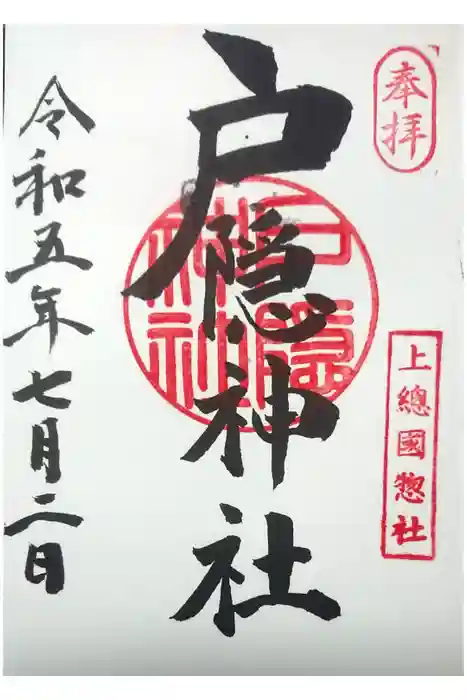 奉拝
上總國惣社
戸隠神社
戸隠
神社
令和五年七月二日